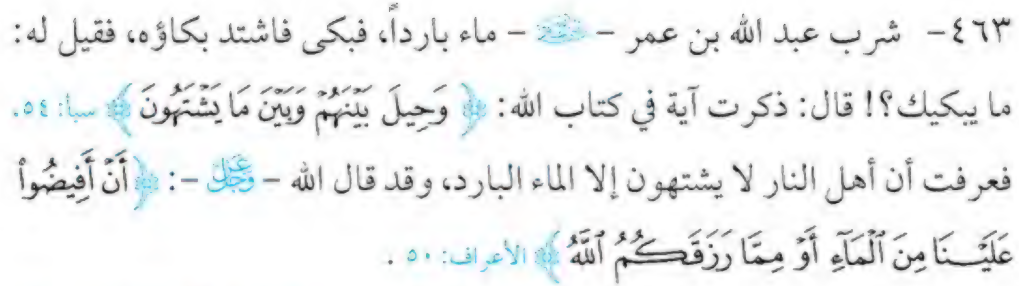 ٤٦٣- شرب عبد الله بن عمر - - ماء بارداً، فبكى فاشتد بكاؤه، فقيل له:
ما يبكيك؟! قال: ذكرت آية في كتاب الله: ﴿ وَحِيلَ بَيْنَهُمْ وَبَيْنَ مَا يَشْتَهُونَ ﴾ سبأ: ٥٤.
فعرفت أن أهل النار لا يشتهون إلا الماء البارد، وقد قال الله - عَزَّ وَجَلَّ -: ﴿ أَنْ أَفِيضُواْ
عَلَيْنَا مِنَ ٱلْمَآءِ أَوْ مِمَّا رَزَقَكُمُ ٱللَّهُ ﴾ الأعراف: ٥٠ .